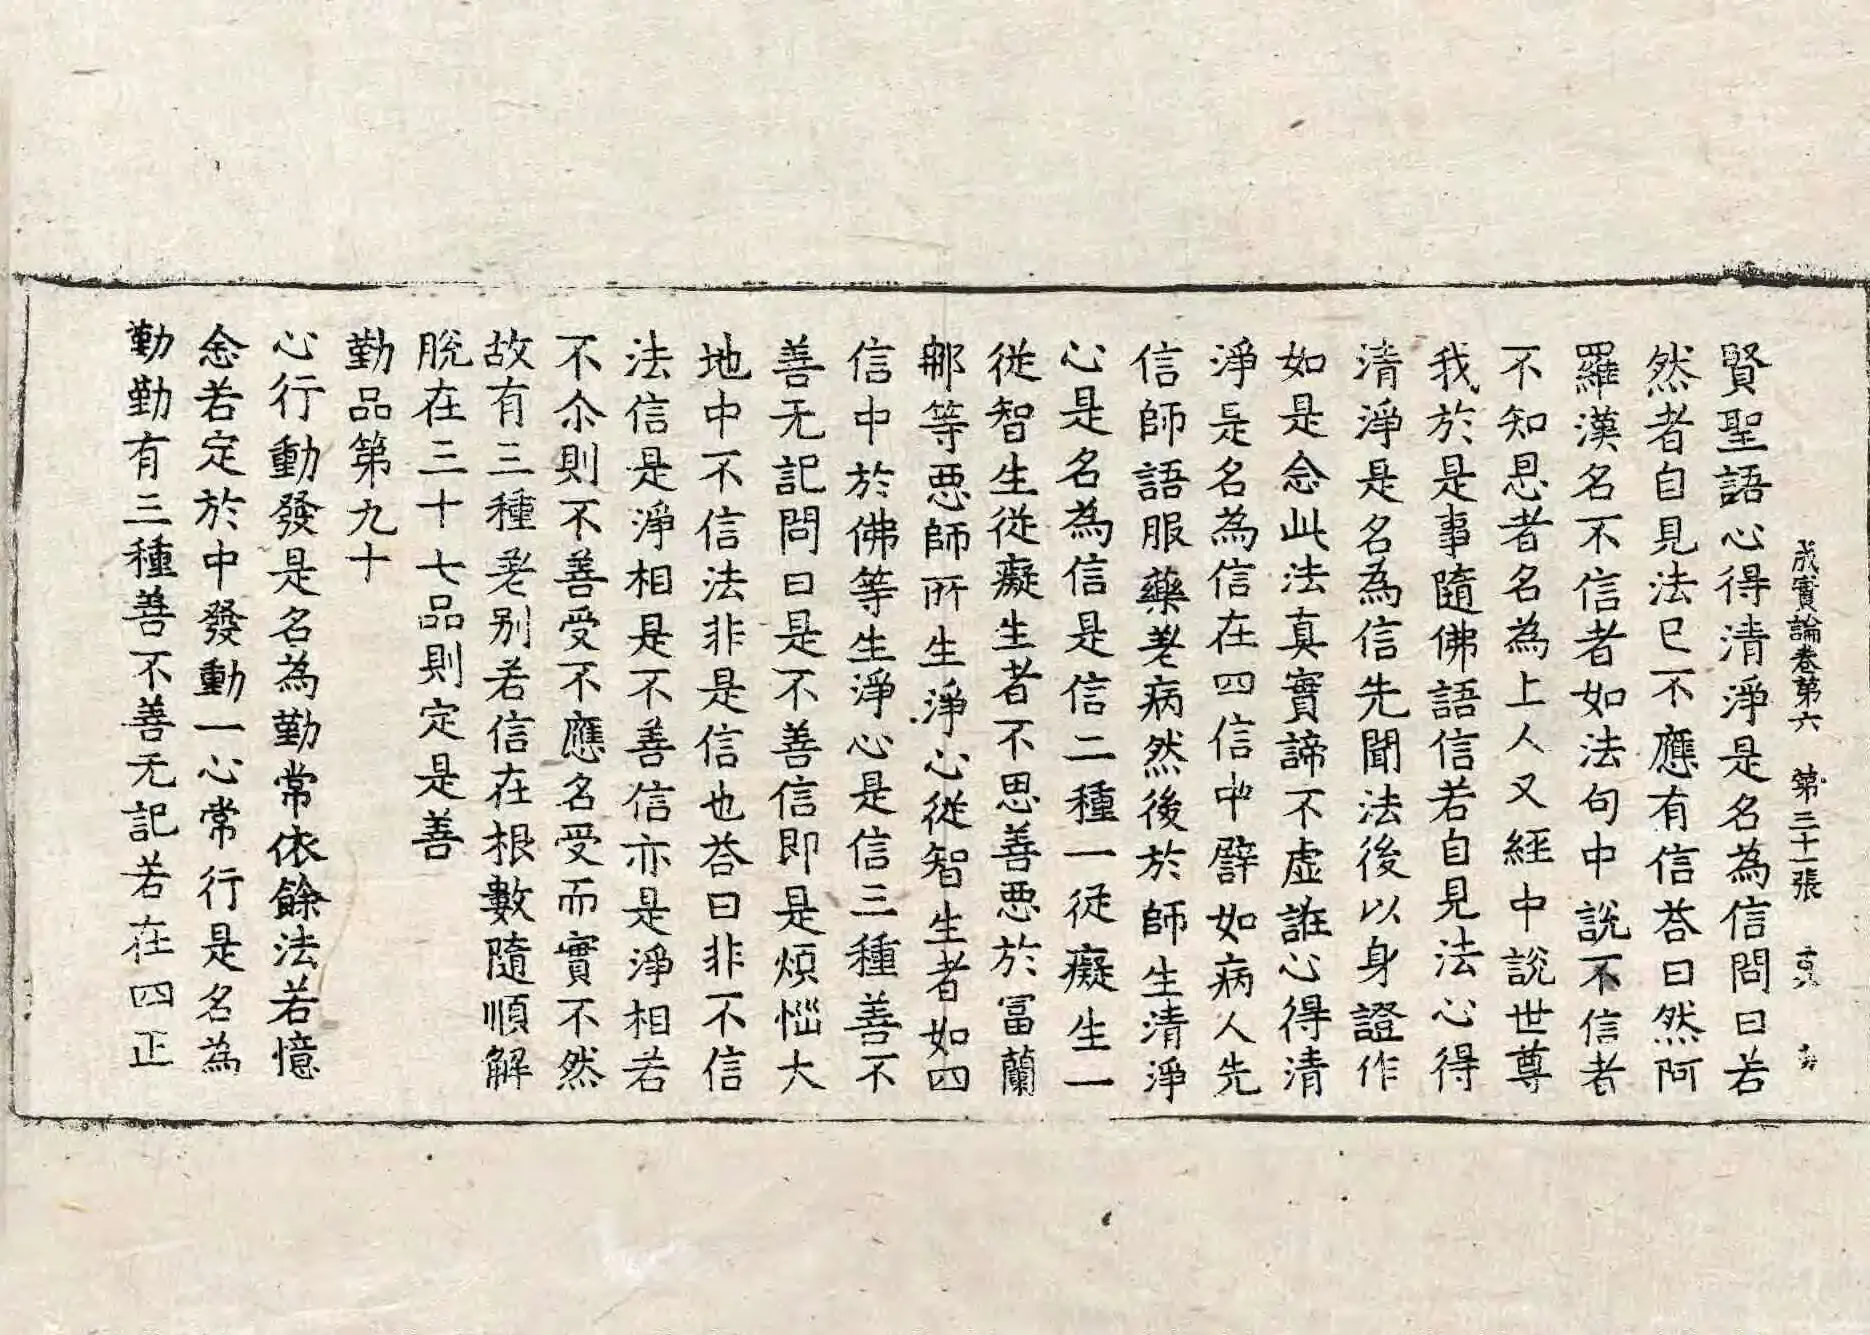 成實論卷第六 第三十一張 京
賢聖語心得清淨是名為信問曰若
然者自見法已不應有信荅曰然阿
羅漢名不信者如法句中說不信者
不知恩者名為上人又經中說世尊
我於是事隨佛語信若自見法心得
清淨是名為信先聞法後以身證作
如是念此法真實諦不虛誑心得清
淨是名為信在四信中譬如病人先
信師語服藥差病然後於師生清淨
心是名為信是信二種一從癡生一
從智生從癡生者不思善惡於富蘭
那等惡師所生淨心從智生者如四
信中於佛等生淨心是信三種善不
善无記問曰是不善信即是煩惱大
地中不信法非是信也荅曰非不信
法信是淨相是不善信亦是淨相若
不尒則不善受不應名受而實不然
故有三種差別若信在根數隨順解
脫在三十七品則定是善
勤品第九十
心行動發是名為勤常依餘法若憶
念若定於中發動一心常行是名為
勤勤有三種善不善无記若在四正